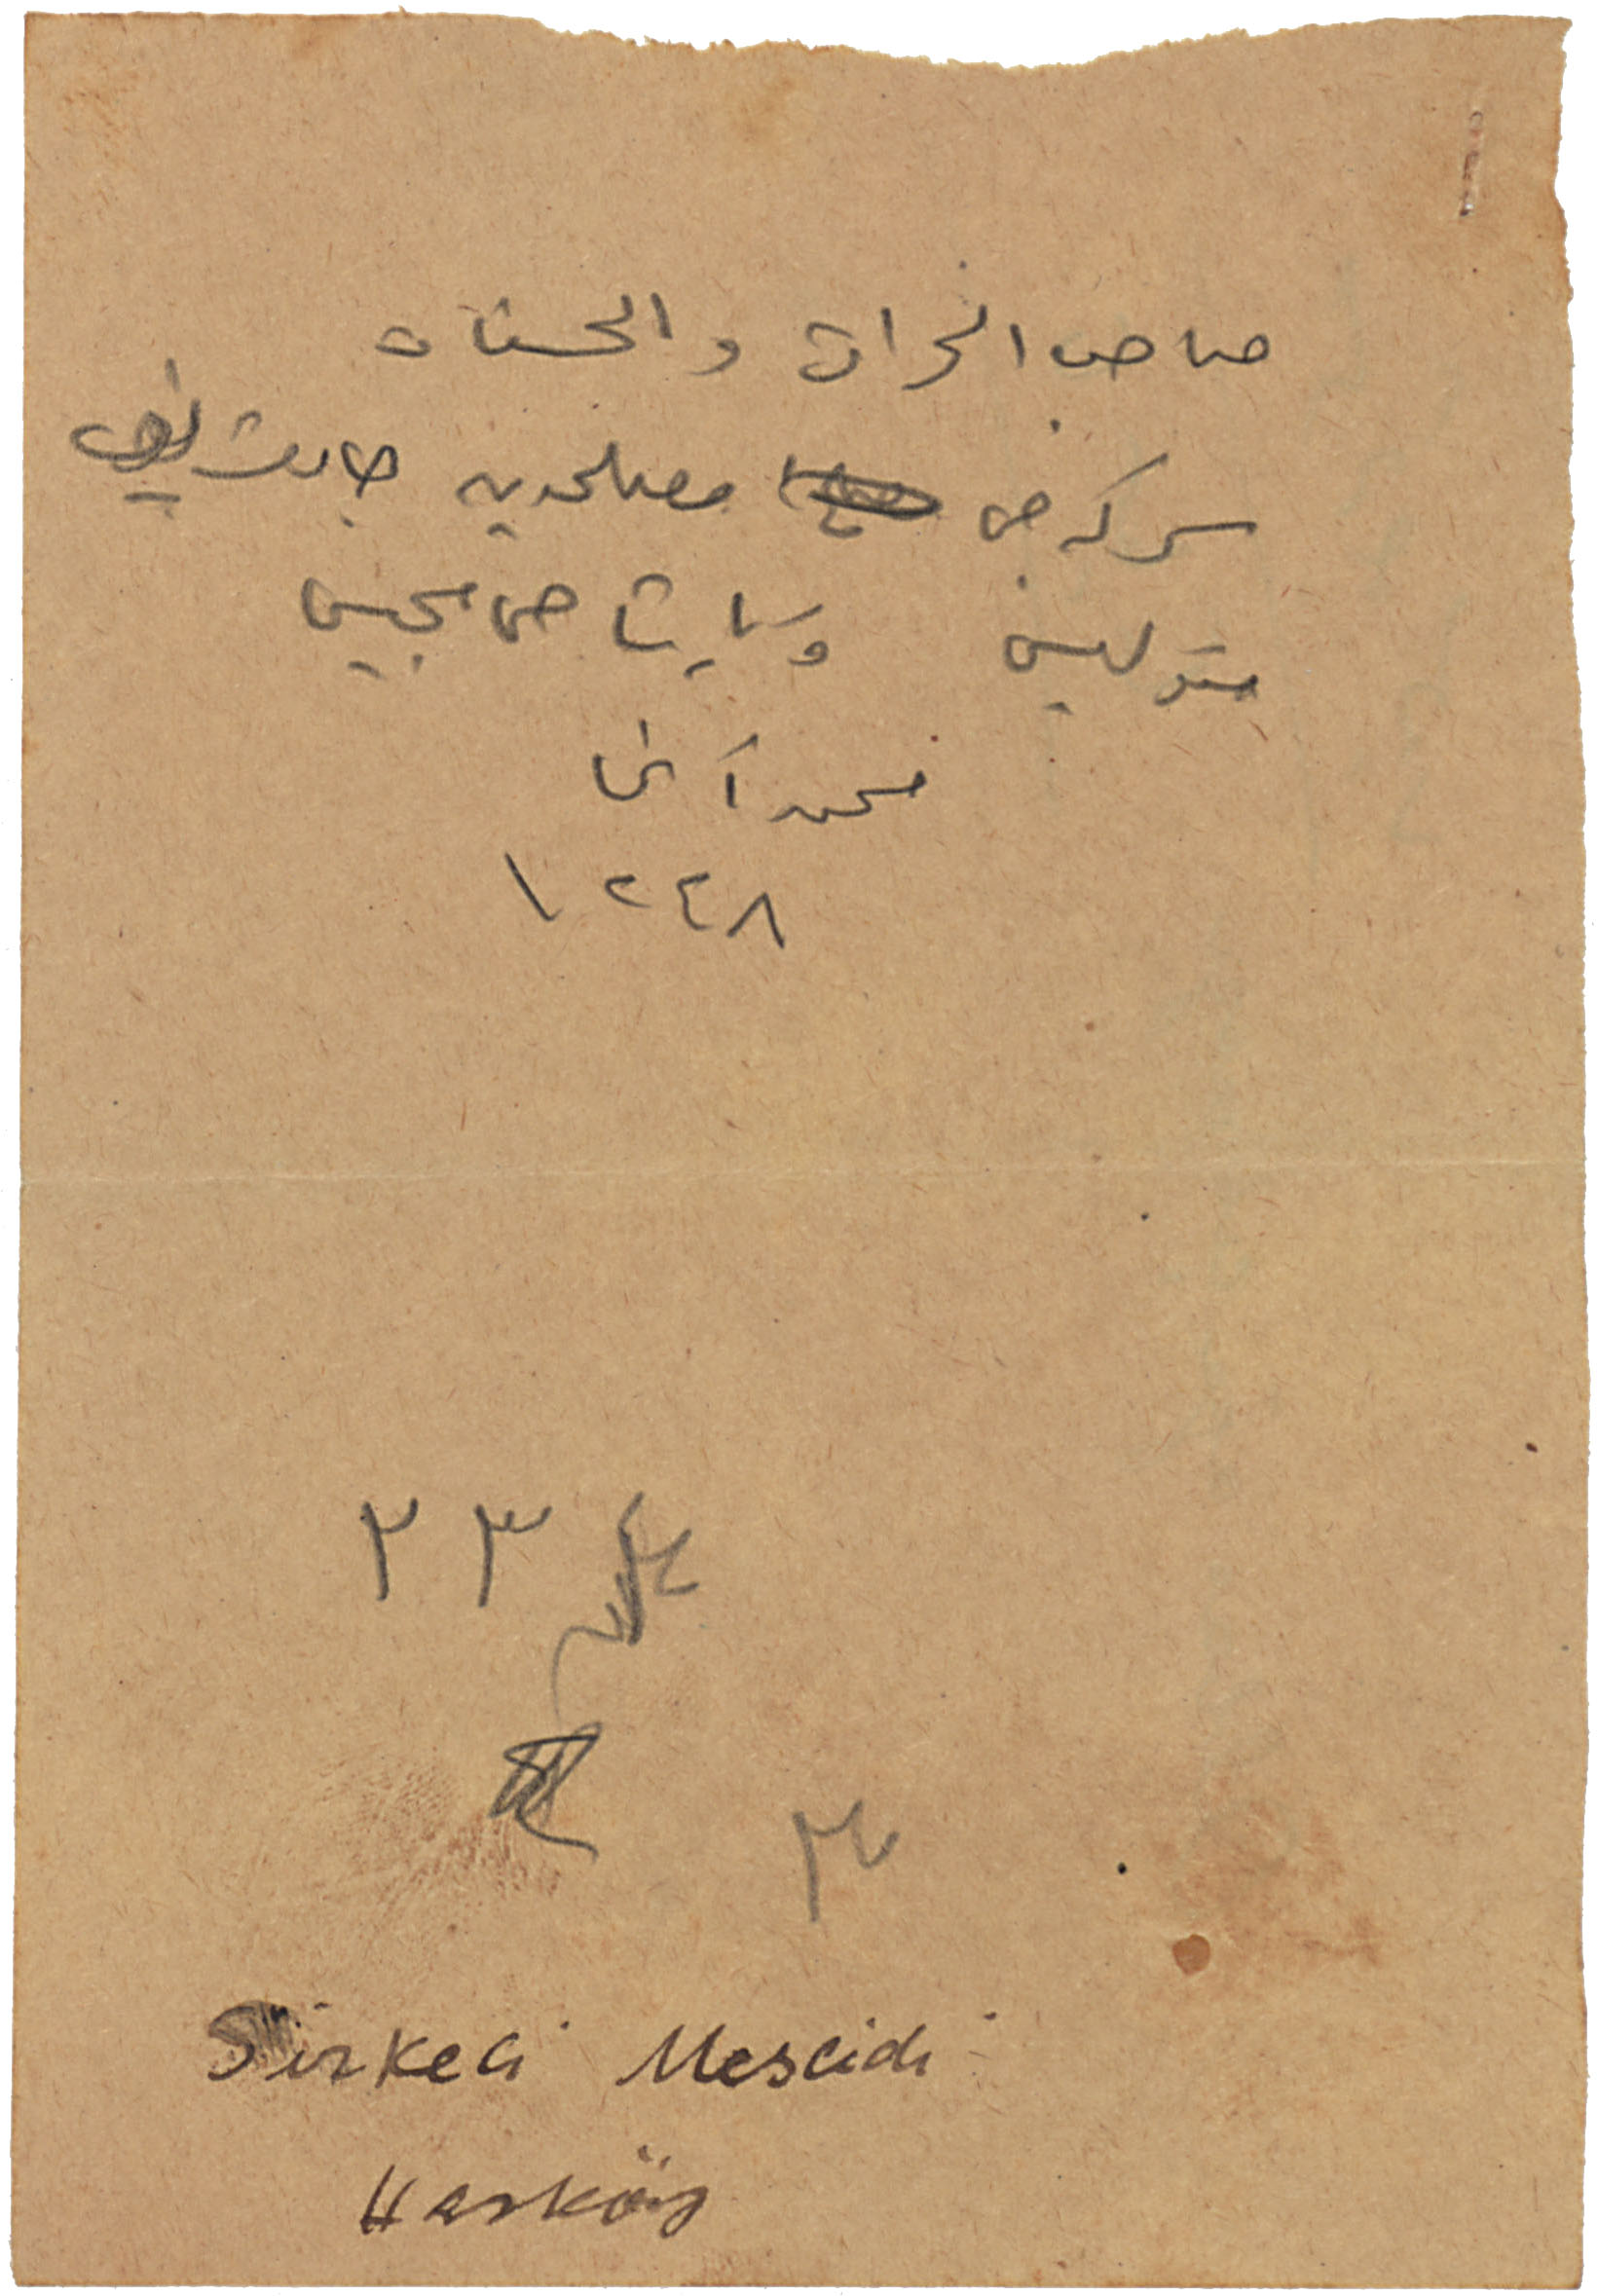 صاحب الخيرات و الحسنات
سركه جى مصلح الدين جامع شريفى
متوليسى وباش احى مجيسى
محمد آغا
١٢٤٨
٢٣
Sirkeci Mescidi
Hasköy